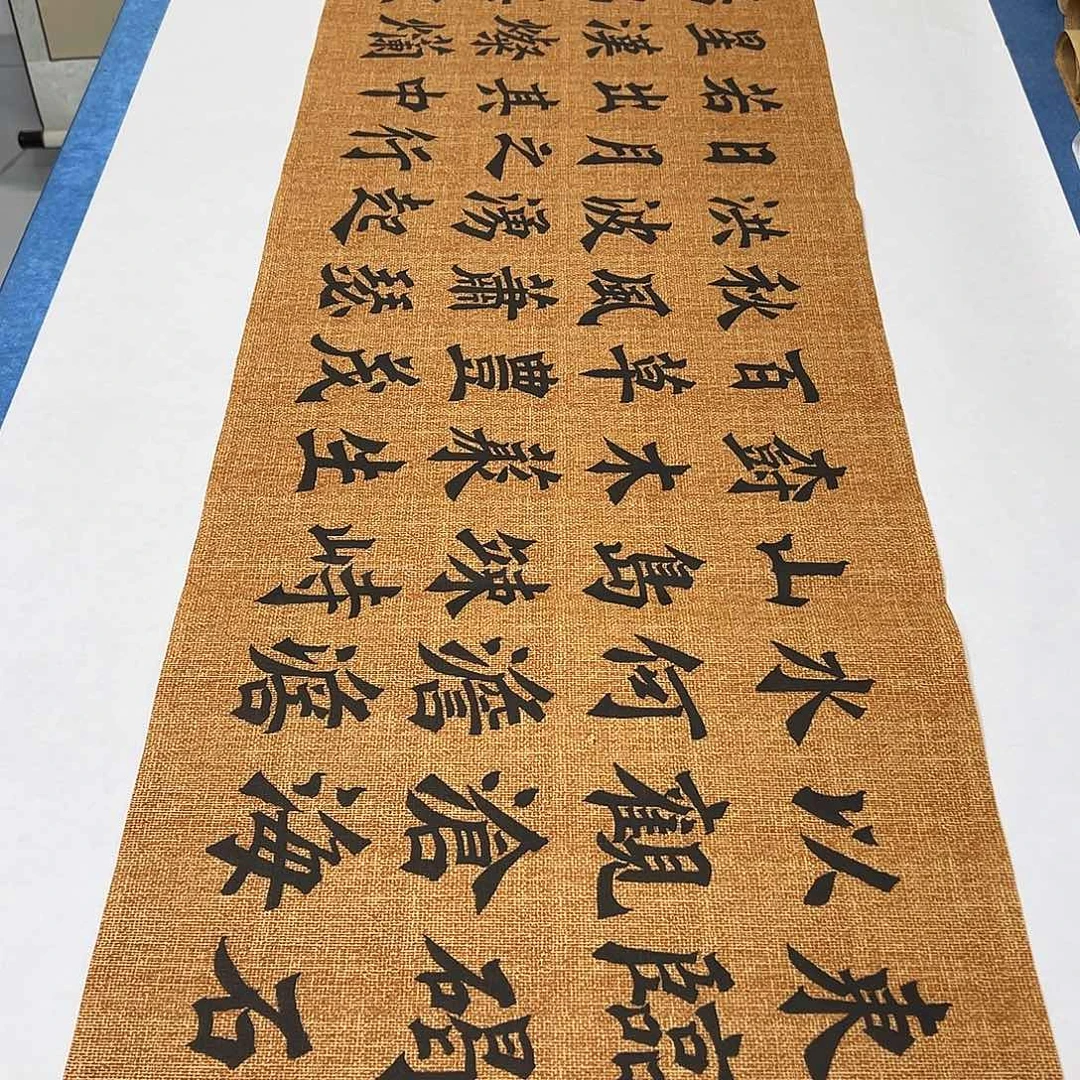 東臨碣石
以觀滄海
水何澹澹
山島竦峙
樹木叢生
百草豐茂
秋風蕭瑟
洪波湧起
日月之行
若出其中
星漢燦爛